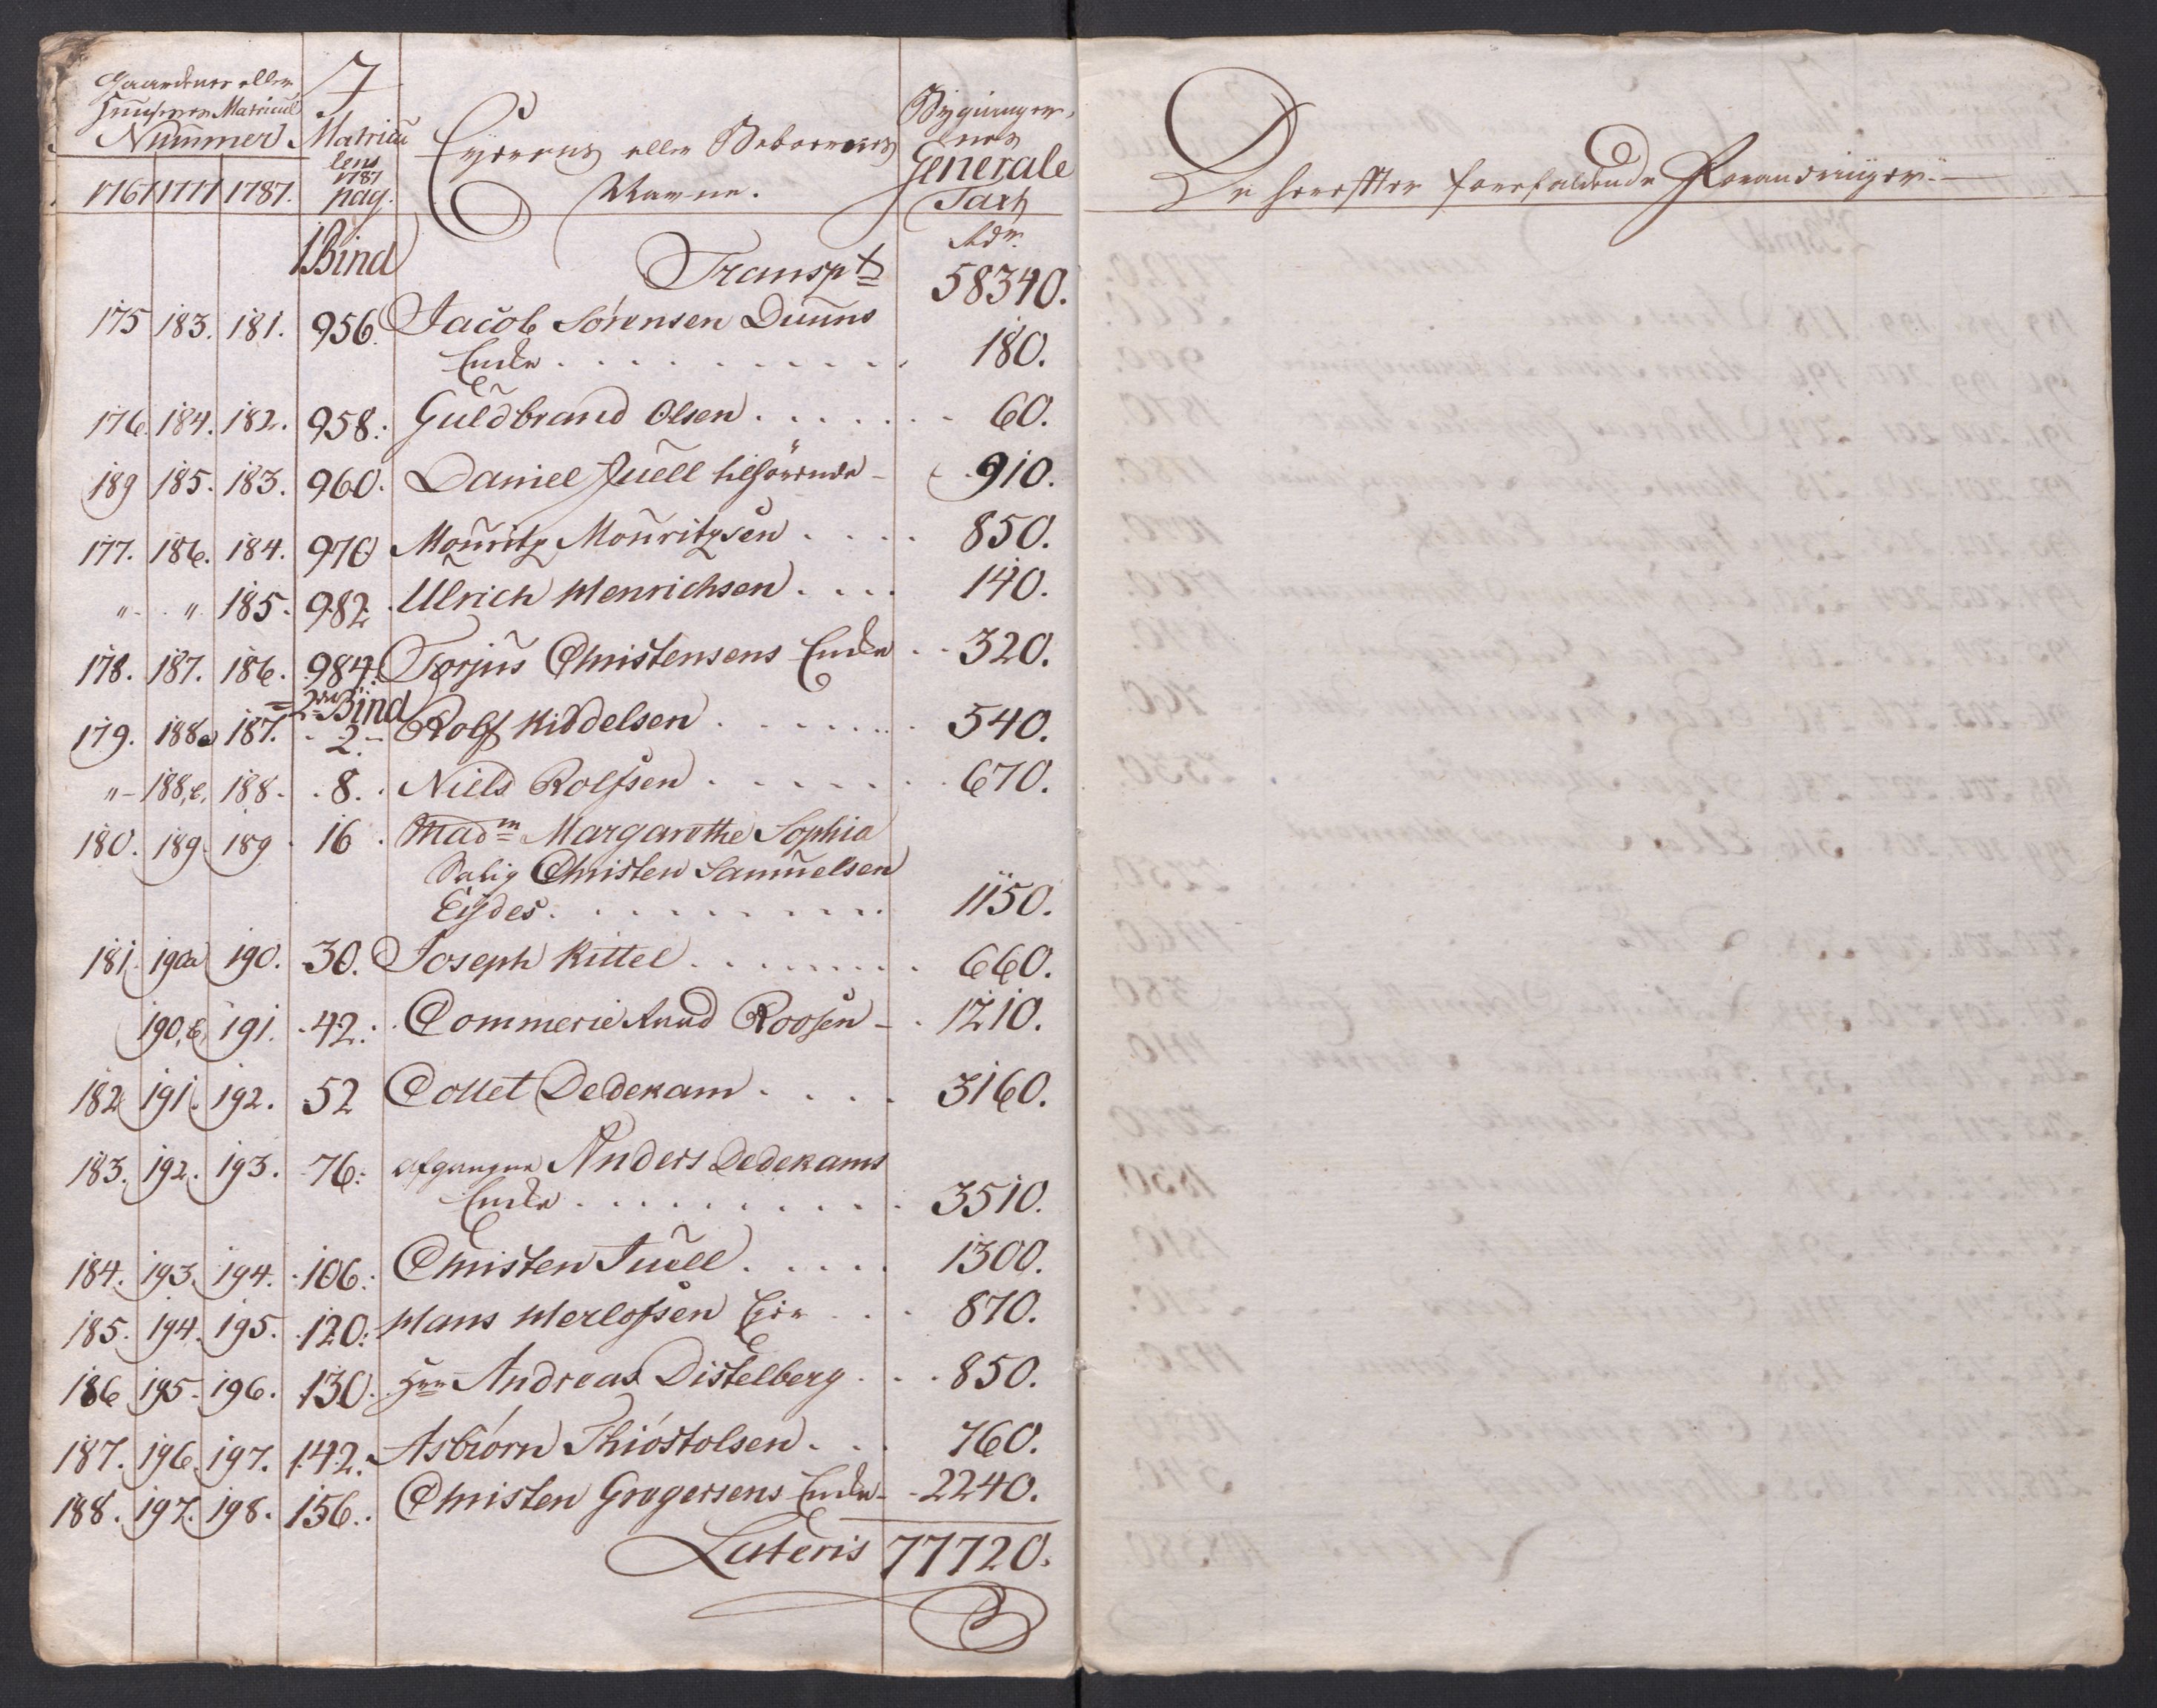 Gaardenes eller
Huusenes Matricul
Nummer
1767 1777 1787.
Matricu
lens
1787
pag.
Eÿerens eller Beboernes
Navne.
Bygninger,
nes
Generale
Taxt
Rdr.
1 Bind Transpt 58340.
175 183. 181. 956. Jacob Sörensen Duuns
Enke . . . . . . . . . 180.
176. 184. 182. 958. Guldbrand Olsen . . . . . . 60.
189 185. 183. 960. Daniel Juell tilhörende - 910.
177. 186. 184. 970 Mouritz Mouritzsen . . . . 850.
" " 185. 982 Ulrich Henrichsen . . . . 140.
178. 187. 186. 984. Torjus Christensens Enke . . 320.
2det Bind
179. 188a 187. 2. Rolf Kiddelsen . . . . . . . 540.
" 188,b. 188. 8. Niels Rolfsen . . . . . . 670.
180. 189. 189. 16. Madm Margarethe Sophia
Salig Christen Samuelsen
Eijdes . . . . . . . . . 1150.
181. 190a 190. 30. Joseph Kittel . . . . . . . 660.
190,b. 191. 42. Commerie Raad Roosen - 1210.
182 191. 192. 52 Collet Dedekam . . . . 3160.
183. 192. 193. 76. afgangne Anders Dedekams
Enke . . . . . . . . . 3510.
184. 193. 194. 106. Christen Juell . . . . . 1300.
185. 194. 195. 120. Hans Herlofsen . . . 870.
186 195. 196. 130. Hrr Andreas Distelberg . . . 850.
187. 196. 197. 142. Asbiörn Thiöstolsen . . . 760.
188. 197. 198. 156. Christen Gregersens Enke - 2240.
Lateris 77720.
De herefter forefaldende Forandringer.